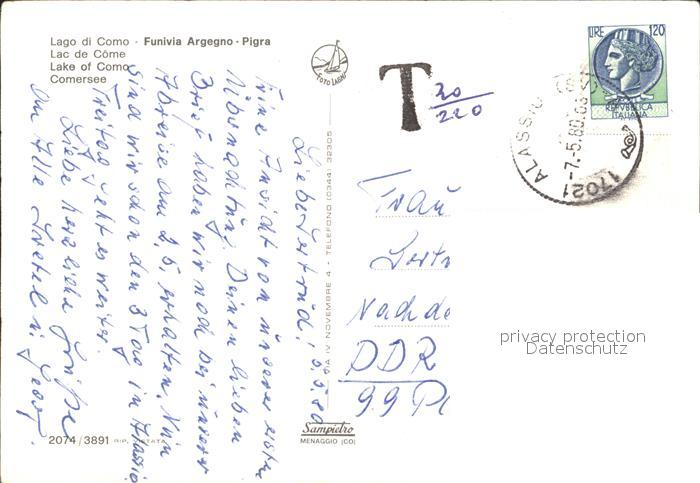 Lago di Como - Funivia Argegno - Pigra
Lac de Côme
Lake of Como
Comersee
FOTO LAGHI
T
20
220
LIRE 120
REPVBBLICA
ITALIANA
17021 ALASSIO
-7.-5.80.
Liebe Gertrud! 5.5.80
Eine Ansicht von unserer ersten
Übernachtung. Deinen lieben
Brief haben wir noch bei unserer
Abreise am 2.5. erhalten. Nun
sind wir schon den 3 Tag in Alassio.
Freitag geht es weiter.
Liebe herzliche Grüße
an Alle Gretel u. Georg.
Frau
Gertr
Nach de
DDR
99 Pl
VIA IV NOVEMBRE 4 - TELEFONO (0344) 32305
Sampietro
MENAGGIO (CO)
2074/3891 RIP. VIETATA
privacy protection
Datenschutz